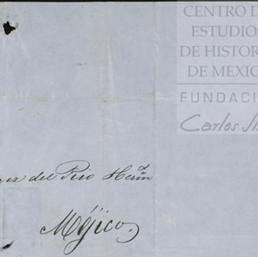 CENTRO D
ESTUDIO
DE HISTOR
DE MEXIC
FUNDACI
Carlos Sli
del Rio Herm
Méjico,